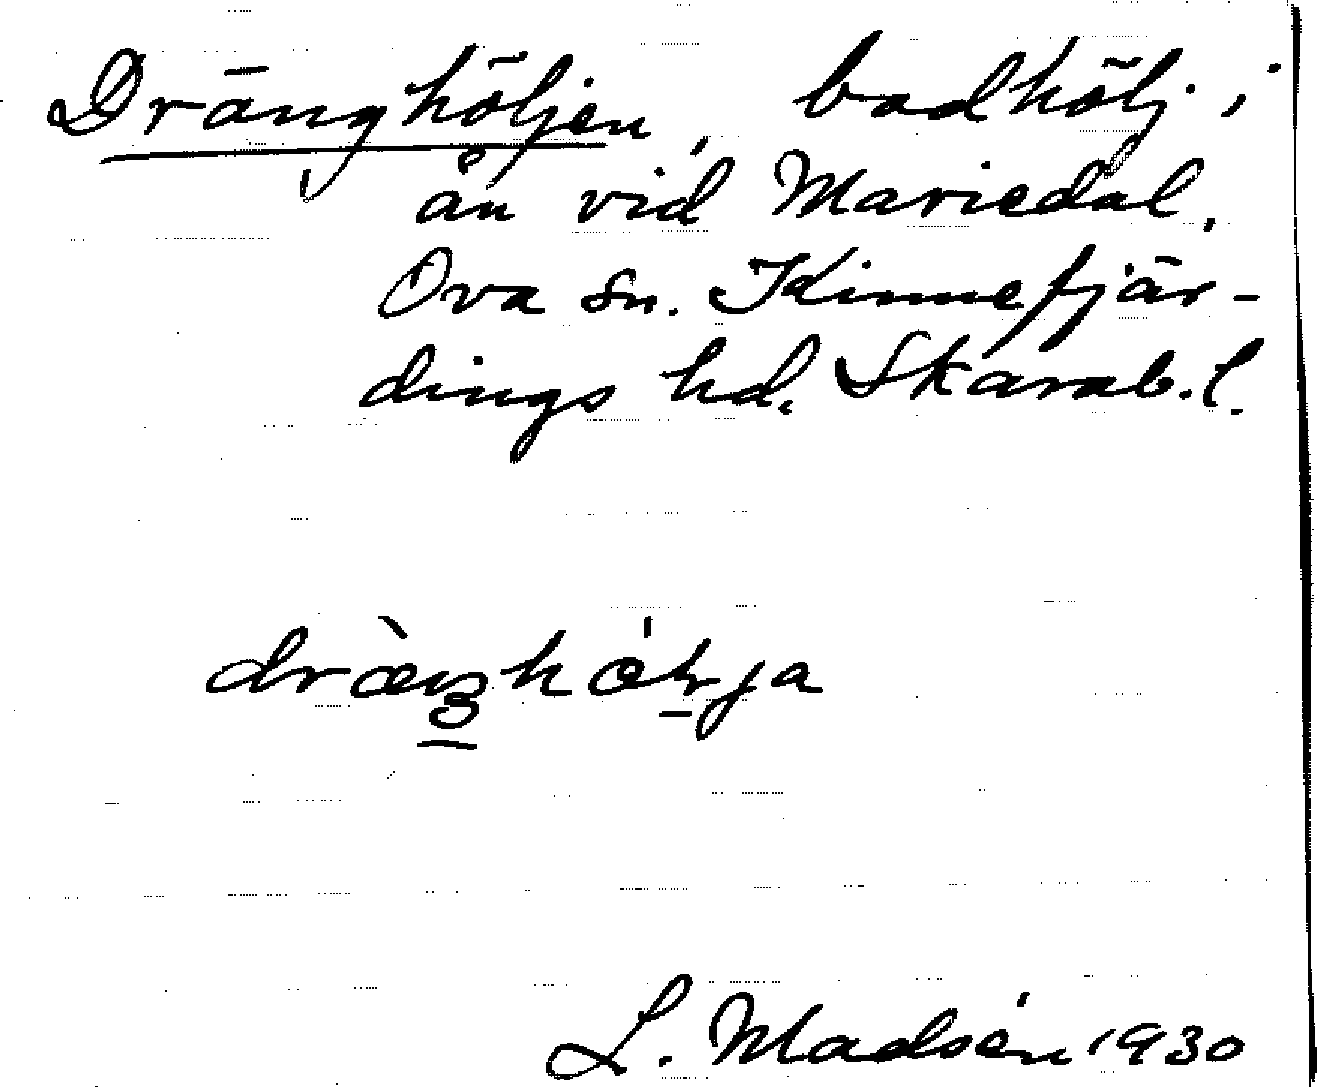 Dränghöljen, badhölj i
ån vid Mariedal,
Ova sn. Kinnefjär-
dings hd. Skarab. l.
L. Madsén 1930